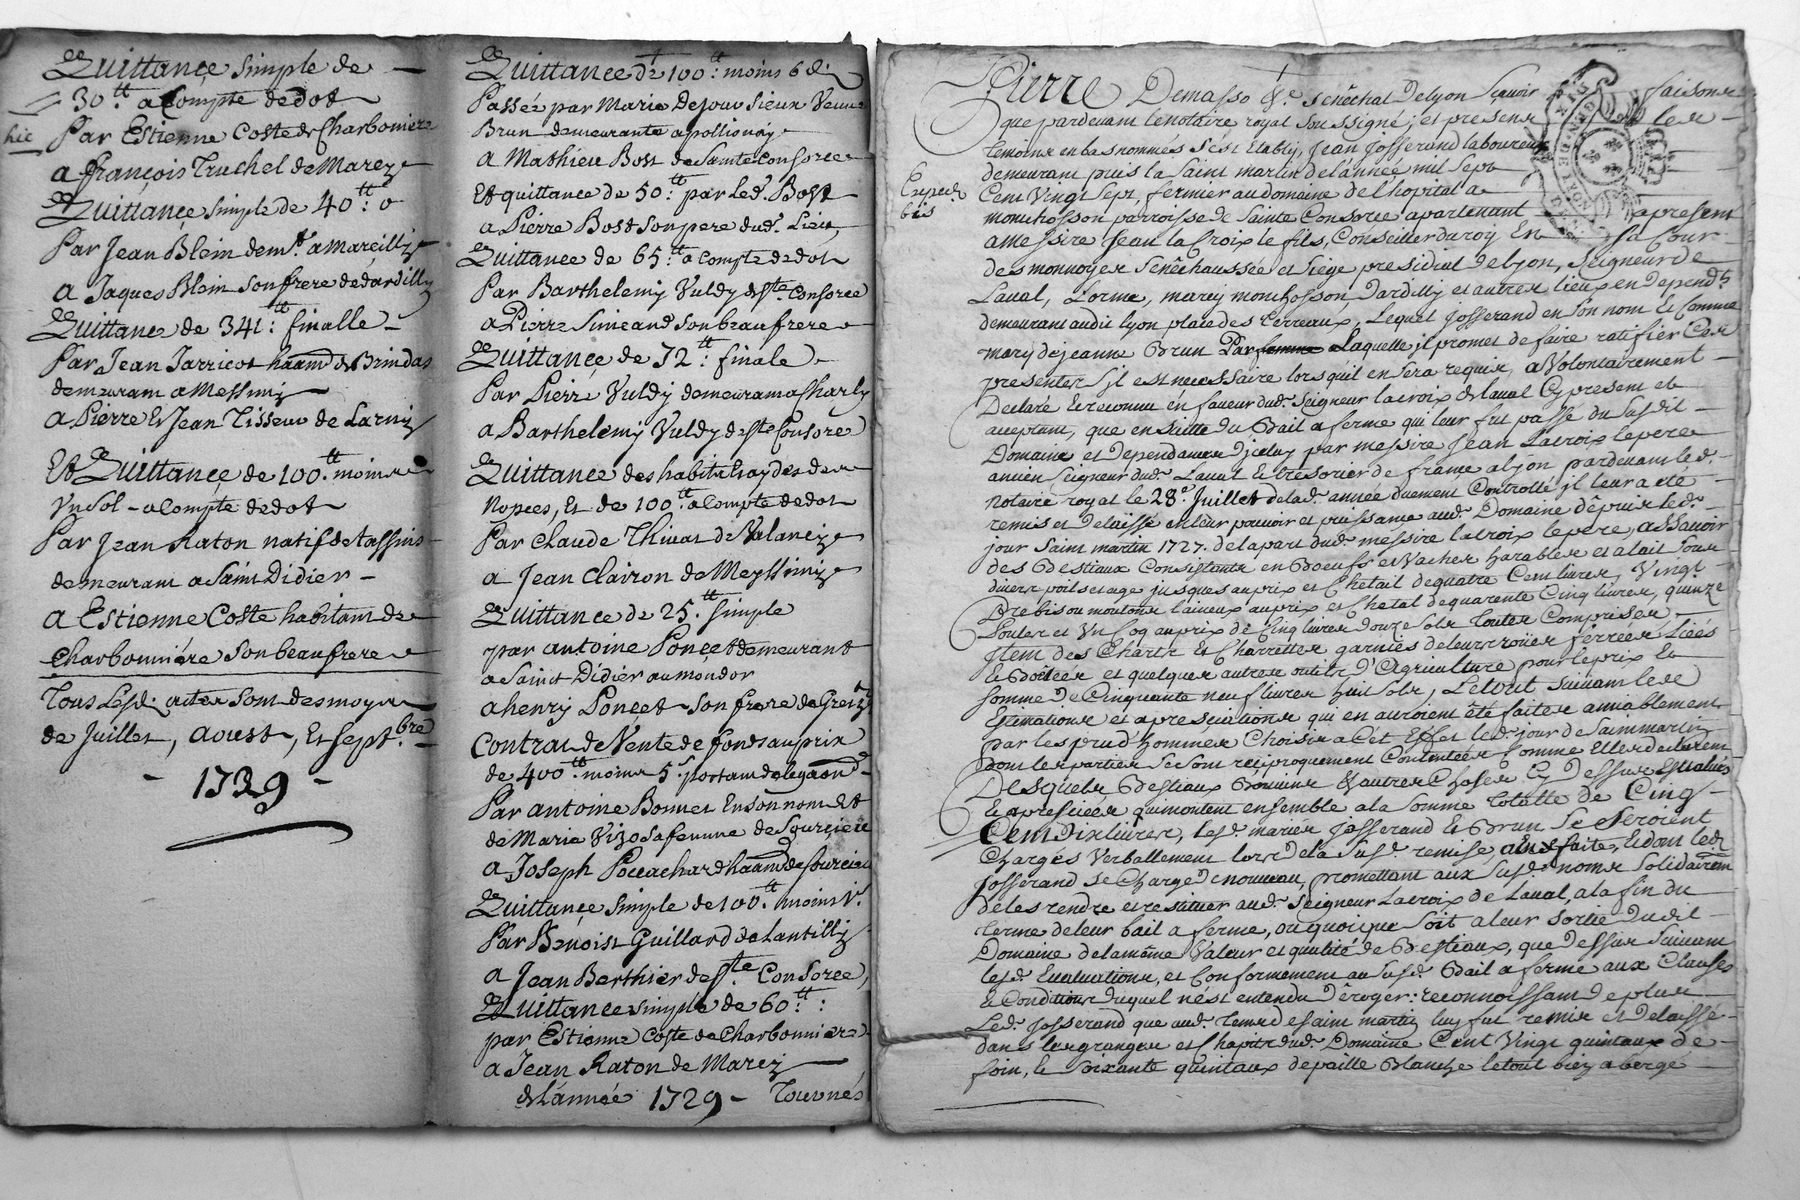 Quittance simple de
30.tt a Compte de dot
hic
Par Estienne Coste de Charboniere
a françois Truchel de Marezy
Quittance simple de 40.tt
Par Jean Blein dem.t a Mareilly
a Jaques Blein son frere de dardilly
Quittance de 341.tt finalle
Par Jean Jarricot de Brindas
demeurant a Messimy
a Pierre Et Jean Tisseur de Larny
Et Quittance de 100.tt moins
Un sol a Compte de dot
Par Jean Raton natif de tassins
demeurant a Saint Didier
a Estienne Coste habitant de
Charbonniére Son beaufrere
Tous Lesd. actes sont des moys
de Juillet, Aoust, Et Sept.bre
1729
Quittance de 100.tt moins 6 d.
Passée par Marie Dejoux Sieux Veuve
Brun demeurante a pollionay
a Mathieu Bost de Sainte Consorce
Et quittance de 50.tt par led. Bost
a Pierre Bost son pere dud. Lieu
Quittance de 65.tt a Compte de dot
Par Barthelemy Vuldy de Ste. Consorce
a Pierre Simeand son beaufrere
Quittance de 72.tt finale
Par Pierre Vuldy demeurant a Charly
a Barthelemy Vuldy de Ste Consorce
Quittance des habits
Nopces, Et de 100.tt a Compte de dot
Par Claude Thivat de
a Jean Clairon de Meyssimy
Quittance de 25.tt simple
par antoine Poncet demeurant
a Sainct Didier au mondor
a henry Poncet son frere de Grei
Contrat de Vente de fonds au prix
de 400.tt moins 5 s. portant delegaon
Par antoine Bonnet En son nom Et
de Marie Vizo sa femme de Sourcieu
a Joseph de sourcieu
Quittance simple de 100.tt moins
Par Benoist Guillard de Lantilly
a Jean Berthier de Ste. Consorce,
Quittance simple de 60.tt:
par Estienne Coste de Charbonniere
a Jean Raton de Marezy
de l'année 1729 Tournés
Pierre Demasso &c. senêchal de Lyon Sçavoir faisons
que pardevant le notaire royal soussigné, et presens les
temoins en bas nommés s'est Etably, Jean Josserand laboureur
demeurant puis la Saint martin de l'année mil sept
Exped.
bis
Cent Vingt Sept, fermier au domaine de l'hopital a
monchosson parroisse de Sainte Consorce apartenant apresent
a messire Jean la Croix le fils, Conseiller du roy En sa Cour
des monnoyes Senêchaussée et Siége presidial de Lyon, Seigneur de
Laval, Lorme, marcy monchosson Dardilly et autres lieux en depend.s
demeurant audit lyon place des terreaux, Lequel Josserand en son nom Et Comme
mary de jeanne Brun Par Laquelle il promet de faire ratifier Ces
presentes s'il est necessaire lors quil en sera requis, a Volontairement
Declaré Et reconnu en faveur dud. Seigneur lacroix de laval Cy present et
acceptant, que en suitte du Bail a ferme qui leur fut passé du Susdit
Domaine et dependances d'icelui par messire Jean Lacroix le pere
ancien Seigneur dud. Laval Et tresorier de france a lyon pardevant led.
Notaire royal le 28.e Juillet de lad. année duement Controllé il leur a eté
remis et delaissé en leur pouvoir et puissance aud. Domaine dêpuis led.
jour Saint martin 1727. de la part dud. messire lacroix le pere, assavoir
des Bestiaux Consistants en Boeufs et Vaches harables et a lait sous
divers poils et age jusques au prix et Chetail de quatre Cent livres, Vingt
Brebis ou moutons laineux au prix et Chetal de quarente Cinq livres, quinze
Poules et Un Coq au prix de Cinq livres douze sols toutes Comprises
Item des Chars Et Charrettes garnies de leurs roües ferrées Liées
Et Boitées et quelques autres outils d'Agriculture pour le prix Et
somme de Cinquante neuf livres huit sols, Le tout suivant les
Estimations et apréciations qui en auroient été faites amiablement
par les prud'hommes Choisis a Cét Effet led. jour de Saint martin
dont les parties se sont reciproquement Contentées Comme Elles declarent
Desquels Bestiaux Et autres choses Cy dessus Evalués
Et apreciées qui montent ensemble a la somme totalle de Cinq
Cent dix livres, lesd. mariés Josserand Et Brun Se Seroient
Chargés Verballement lors de la Susd. remise, ainsi faite, Et dont led.
Josserand se Charge de nouveau, promettant aux Susd. noms solidairem.
de les rendre et restituer aud. Seigneur Lacroix de Laval, a la fin du
terme de leur bail a ferme, ou quoi que Soit a leur sortie dudit
Domaine de la même Valeur et qualité de Bestiaux, que dessus suivant
lesd. Evaluations, et Conformement au Susd. Bail a ferme aux Clauses
Et Conditions duquel n'est entendu dêroger: reconnoissant de plus
Led. Josserand que aud. tems de saint martin luy fut remis et delaissé
dans les granges et dud. Domaine Cent Vingt quintaux de
foin, Et Soixante quintaux de paille Blanche le tout bien abergé